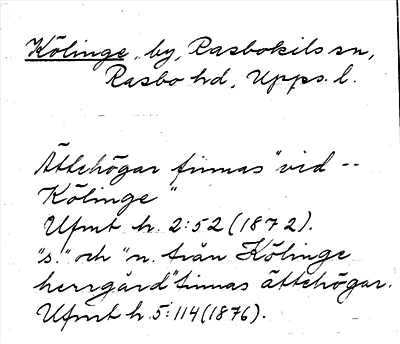 Kölinge, by, Rasbokils sn,
Rasbo hd, Upps. l.
Ättehögar finnas "vid --
Kölinge"
Ufmt h. 2:52 (1872).
"s." och "n. från Kölinge
herrgård" finnas ättehögar.
Ufmt h 5:114 (1876).